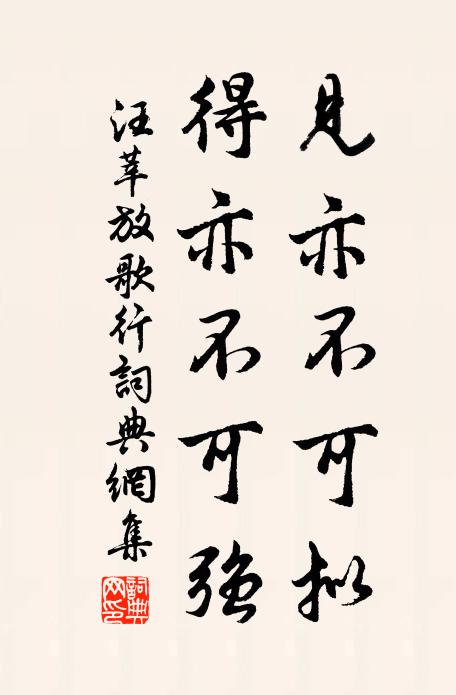 見亦不可拟
得亦不可強
汪莘放歌行詞典網集
詞典网印